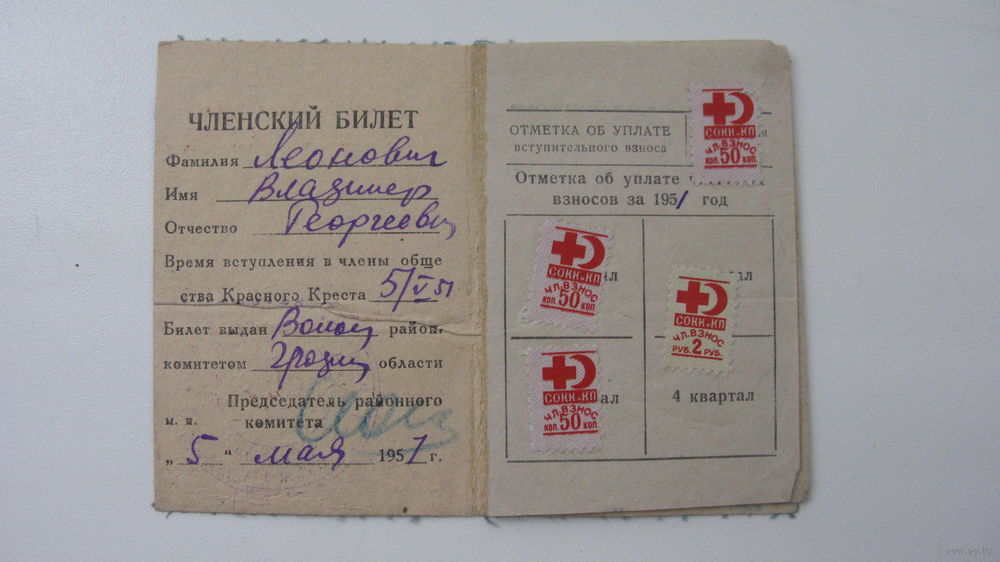 ЧЛЕНСКИЙ БИЛЕТ
Фамилия Леонович
Имя Владимер
Отчество Георгиевич
Время вступления в члены обще
ства Красного Креста 5/V 51
Билет выдан район.
комитетом Гродн области
Председатель районного
м. п. комитета
„ 5 “ мая 1951 г.
ОТМЕТКА ОБ УПЛАТЕ
вступительного взноса
СОКК и КП
ЧЛ. ВЗНОС
КОП. 50 КОП.
Отметка об уплате
взносов за 1951 год
СОКК и КП
ЧЛ. ВЗНОС
КОП. 50 КОП.
СОКК и КП
ЧЛ. ВЗНОС
РУБ. 2 РУБ.
СОКК и КП
ЧЛ. ВЗНОС
КОП. 50 КОП.
4 квартал
www.ay.by